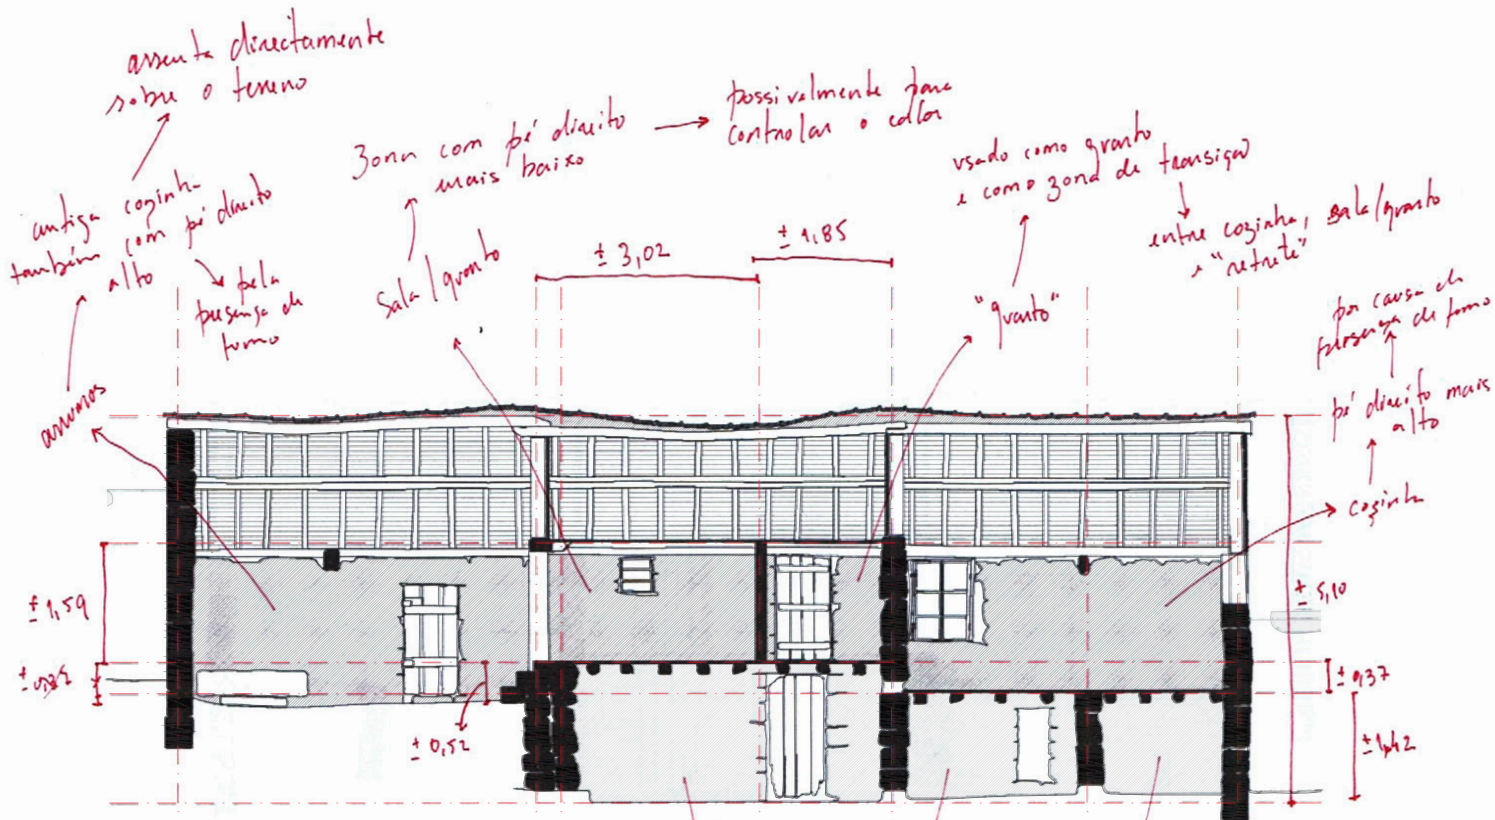 assenta directamente
sobre o terreno
antiga cozinha
também com pé direito
alto
pela
presença de
forno
arrumos
Zona com pé direito
mais baixo
possivelmente para
controlar o calor
Sala/quarto
± 3,02
± 1,85
usado como quarto
e como zona de transição
entre cozinha, sala/quarto
e "retrete"
"quarto"
por causa da
presença de forno
pé direito mais
alto
cozinha
± 1,59
± 0,52
± 5,10
± 0,37
± 1,42